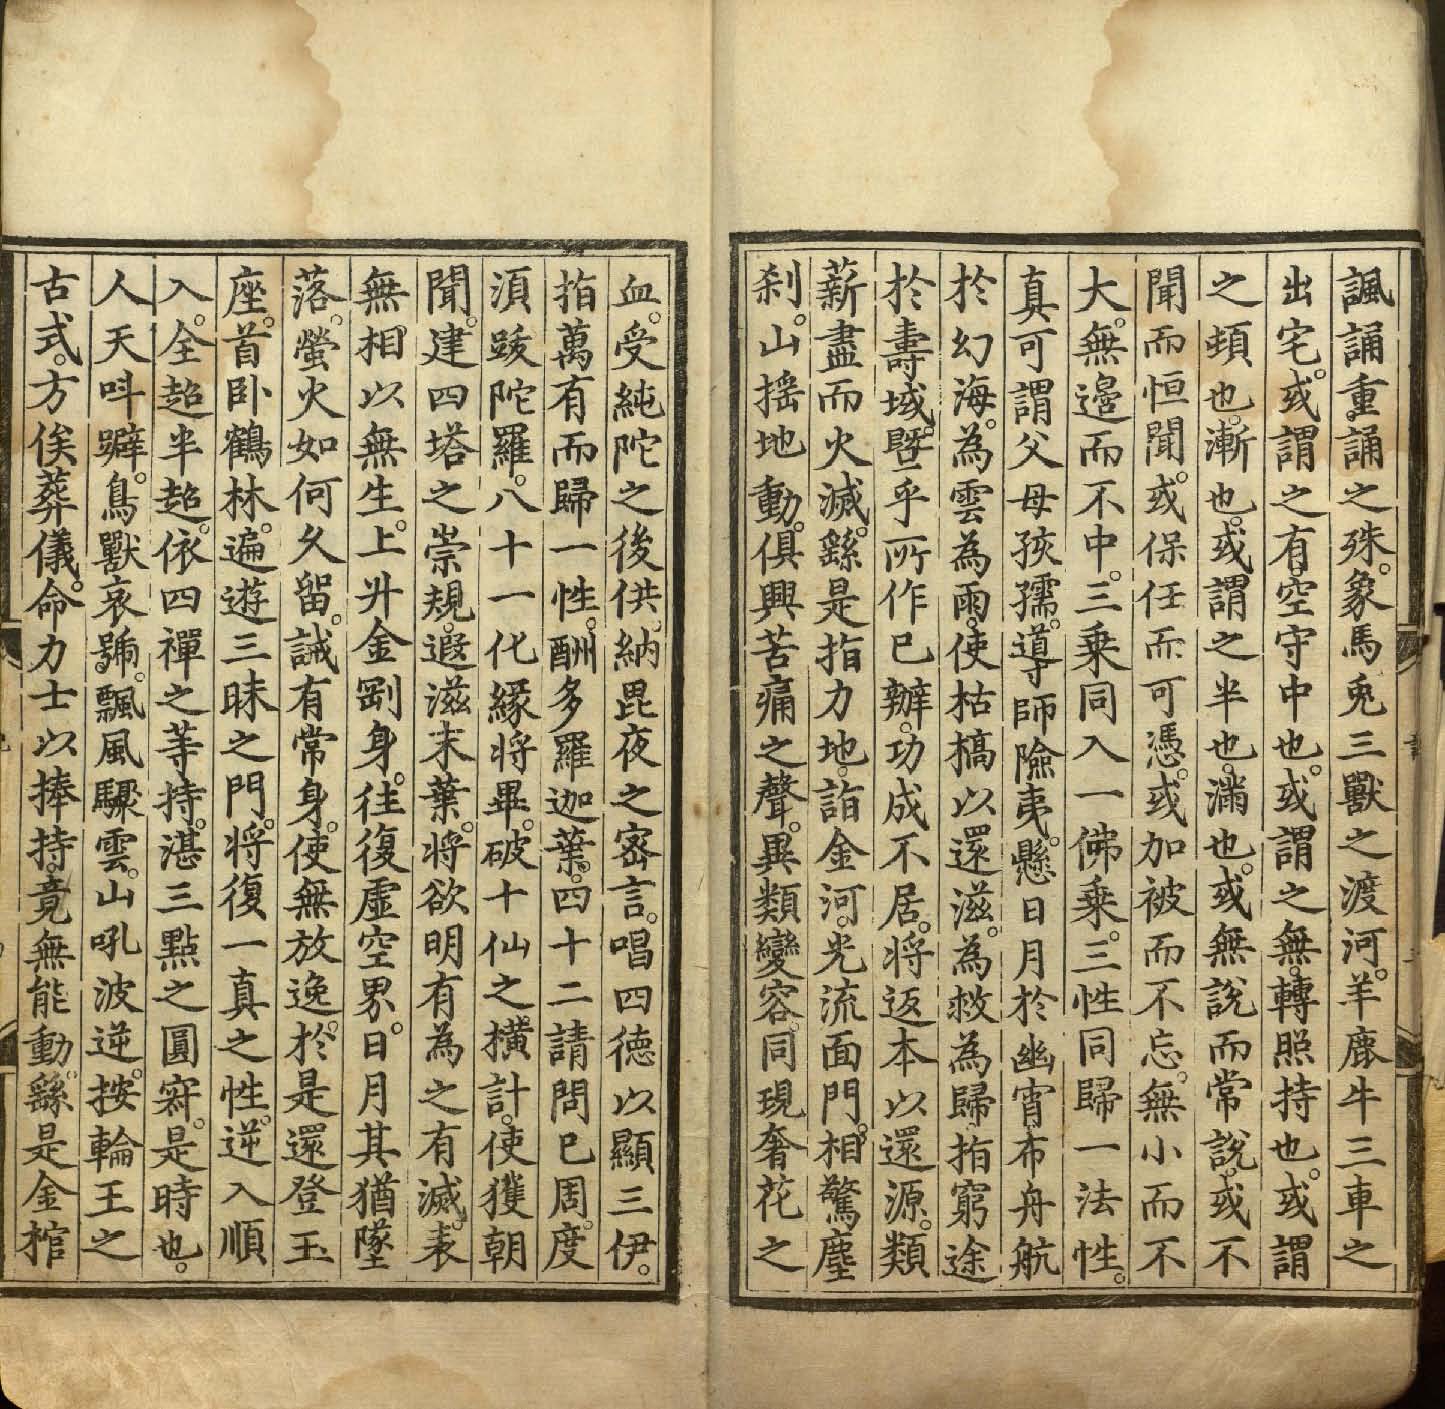 諷誦重誦之殊。象馬兎三獸之渡河。羊鹿牛三車之
出宅。或謂之有。空守中也。或謂之無。轉照持也。或謂
之頓也。漸也。或謂之半也。滿也。或無說而常說。或不
聞而恒聞。或保任而可憑。或加被而不忘。無小而不
大。無邊而不中。三乘同入一佛乘。三性同歸一法性。
真可謂父母孩孺。導師險夷。懸日月於幽宵。布舟航
於幻海。為雲為雨。使枯槁以還滋。為救為歸。拍窮途
於壽域。曁乎所作已辦。功成不居。将返本以還源。類
薪盡而火滅。繇是指力地。詣金河。光流面門。相驚塵
刹。山摇地動。俱興苦痛之聲。異類變容。同現奢花之
血。受純陀之後供。納毘夜之密言。唱四德以顯三伊。
拍萬有而歸一性。酬多羅迦葉。四十二請問已周。度
湏跋陀羅。八十一化緣将畢。破十仙之橫計。使獲朝
聞。建四塔之崇規。遐滋末葉。将欲明有為之有滅。表
無相以無生。上升金剛身。往復虛空界。日月其猶墜
落。螢火如何久留。誡有常身。使無放逸。於是還登玉
座。首卧鶴林。遍遊三昧之門。将復一真之性。逆入順
入。全超半超。依四禪之等持。湛三點之圓寂。是時也。
人天叫躃。鳥獸哀號。飄風驟雲。山吼波逆。按輪王之
古式。方俟葬儀。命力士以捧持。竟無能動。繇是金棺